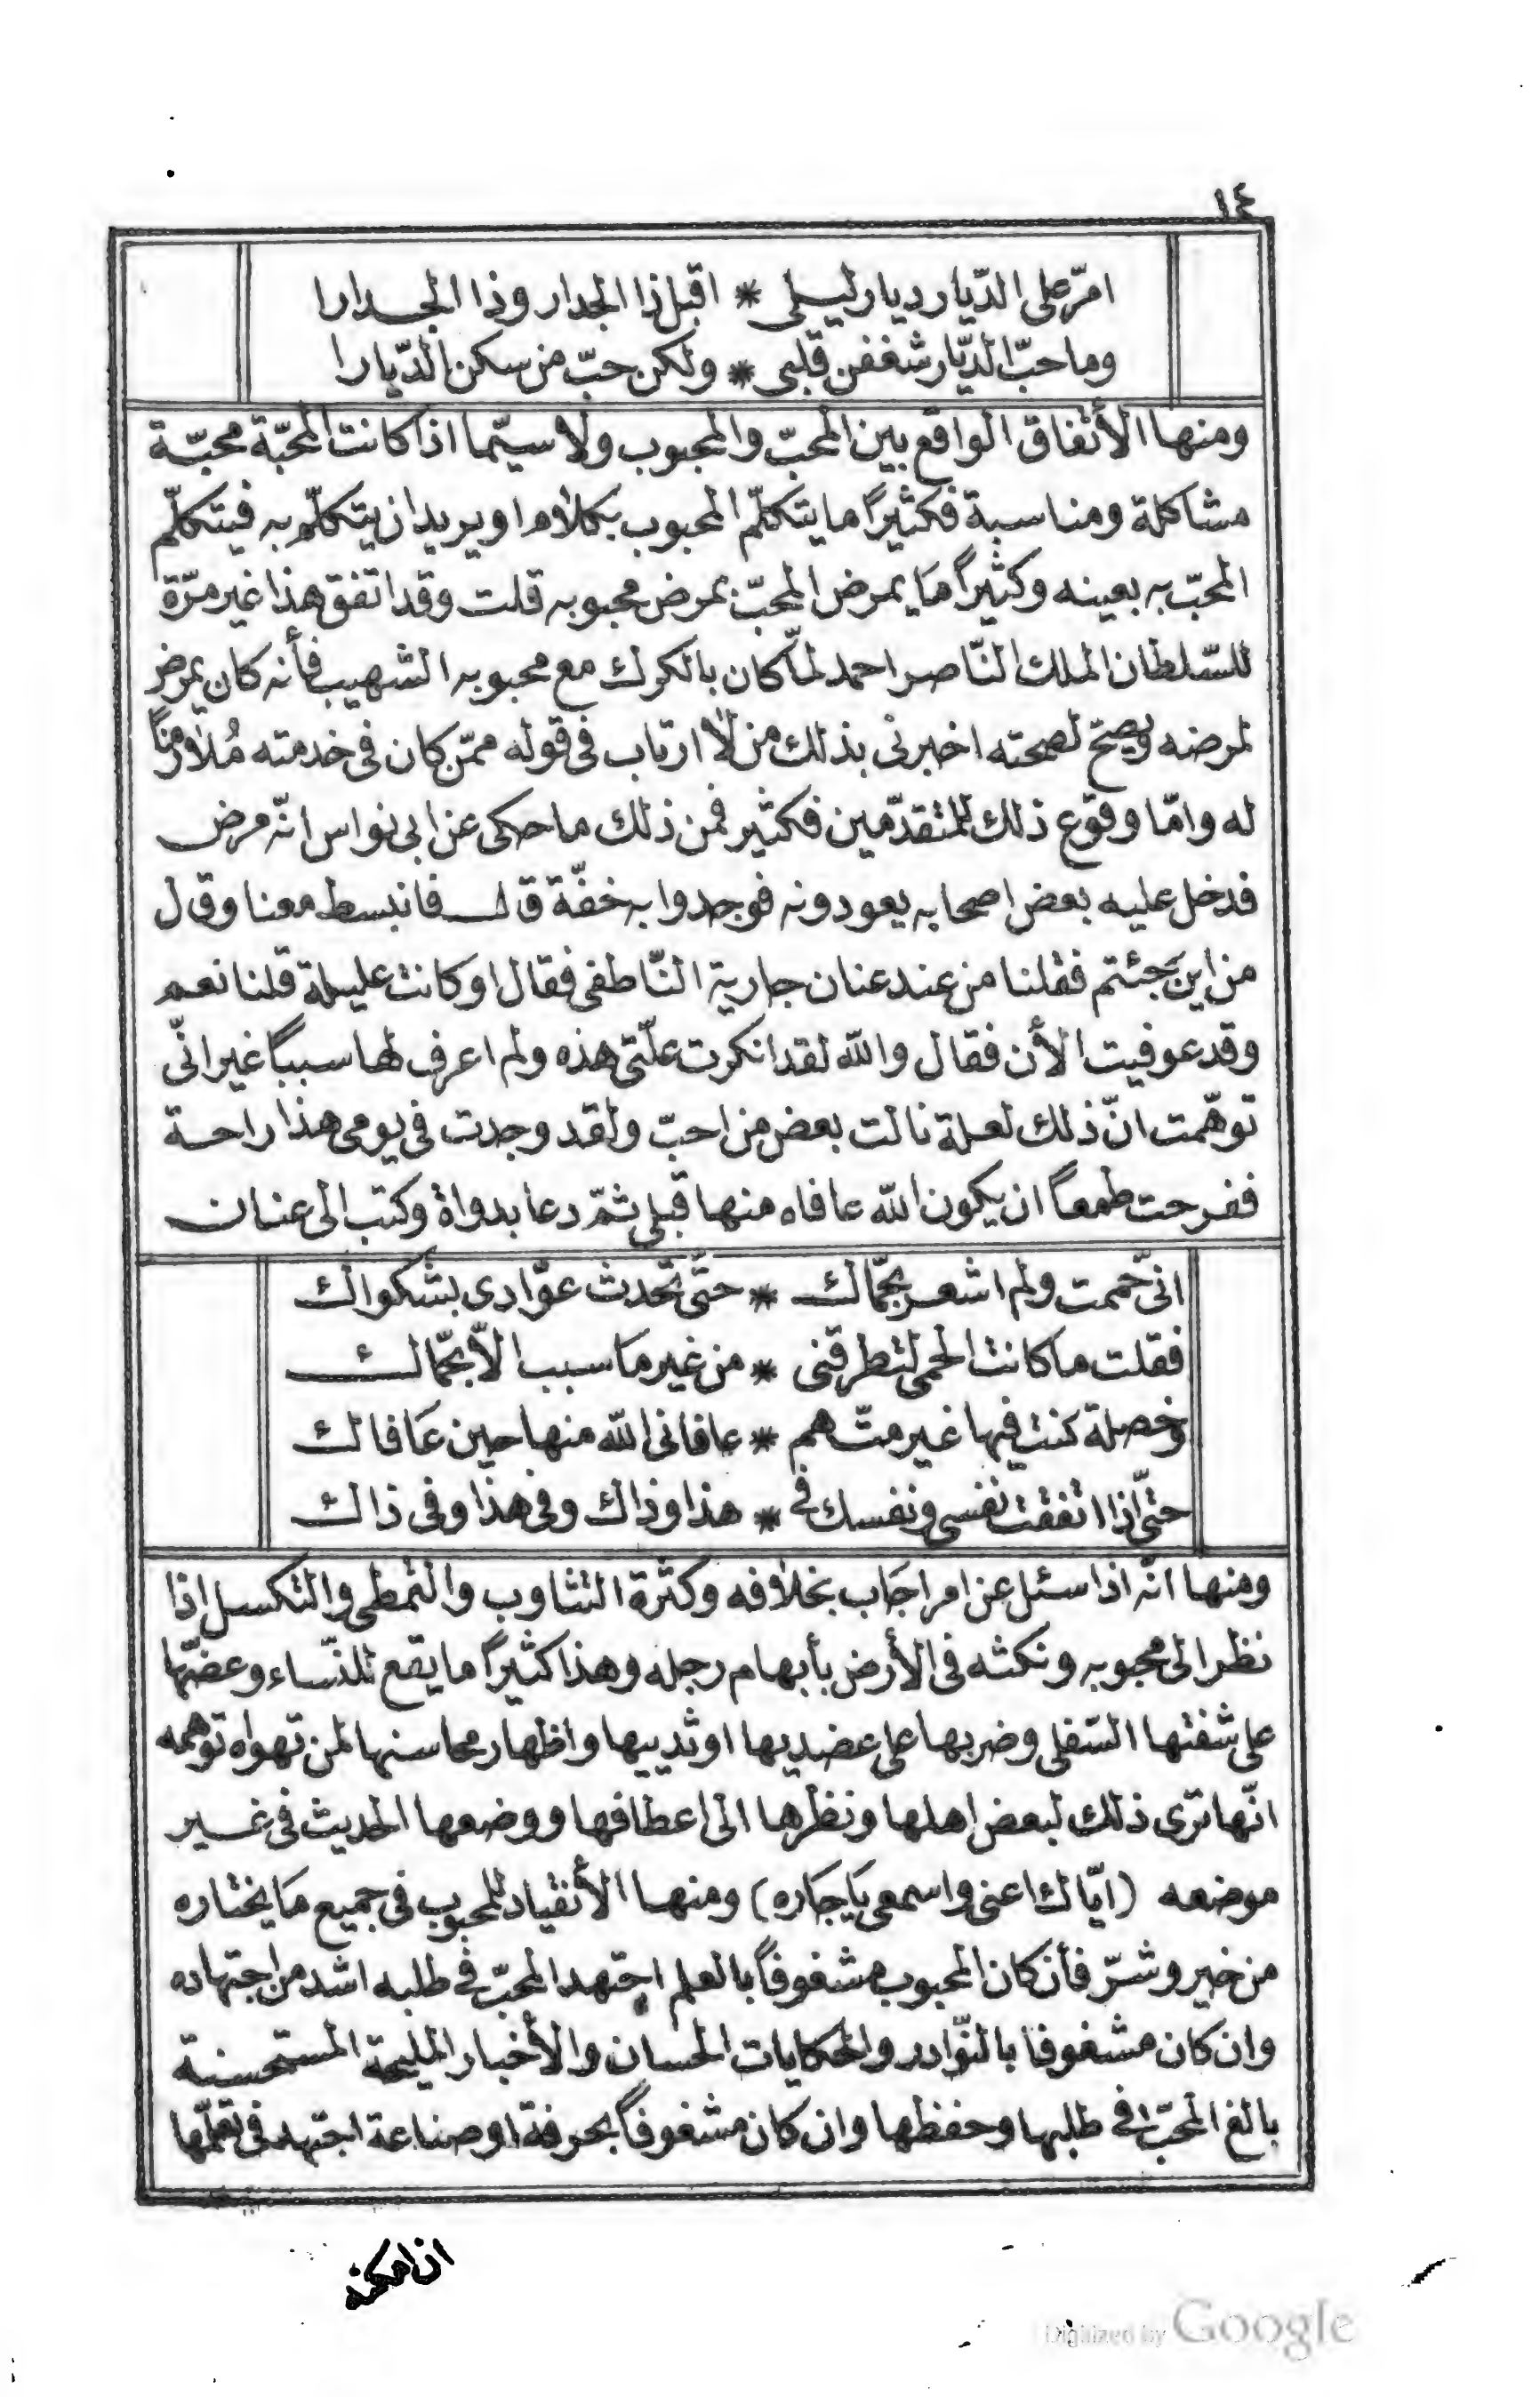 ١٤
امرّ على الدّيار ديار ليلى * اقبل ذا الجدار وذا الجدارا
وما حبّ الديّار شغفن قلبى * ولكن حبّ من سكن الدّيارا
ومنها الأتفاق الواقع بين المحبّ والمحبوب ولا سيّما اذا كانت المحبّة محبّة
مشاكلة ومناسبة فكثيراً ما يتكلّم المحبوب بكلام او يريد ان يتكلّم به فيتكلّم
المحبّ به بعينه وكثيراً ما يمرض المحبّ بمرض محبوبه قلت وقد اتفق هذا غير مرّة
للسّلطان الملك النّاصر احمد لمّا كان بالكرك مع محبوبه الشهيب فأنه كان يمرض
لمرضه ويصحّ لصحته اخبرنى بذلك من لا ارتاب فى قوله ممّن كان فى خدمته مُلازمًا
له وامّا وقوع ذلك للمتقدّمين فكثير فمن ذلك ما حكى عن ابى نواس انّه مرض
فدخل عليه بعض اصحابه يعودونه فوجدوا به خفّة قال فانبسط معنا وقال
من اين جئتم فقلنا من عند عنان جارية النّاطفى فقال او كانت عليلة قلنا نعم
وقد عوفيت الأن فقال والله لقد انكرت علّتى هذه ولم اعرف لها سبباً غير انّى
توهّمت انّ ذلك لعلة نالت بعض من احبّ ولقد وجدت فى يومى هذا راحة
ففرحت طمعاً ان يكون الله عافاه منها قبلى ثمّ دعا بدواة وكتب الى عنان
انّى حممت ولم اشعر بحمّاك * حتّى تحّدث عوّادى بشكواك
فقلت ما كانت الحمى لتطرقنى * من غير ما سبب الّا بحمّاك
وخصلة كنت فيها غير متّهم * عافانى الله منها حين عافاك
حتّى اذا اتفقت نفسى ونفسك فى * هذا وذاك وفى هذا وفى ذاك
ومنها انّه اذا سئل عن امر اجاب بخلافه وكثرة التثاوب والتمطى والتكسل اذا
نظر الى محبوبه ونكثه فى الأرض بأبهام رجله وهذا كثيراً ما يقع للنّساء وعضّها
على شفتها السّفلى وضربها على عضديها او ثدييها واظهار محاسنها لمن تهواه توهمه
انّها ترى ذلك لبعض اهلها ونظرها الى اعطافها ووضعها الحديث فى غير
موضعه (ايّاك اعنى واسمعى يا جاره) ومنها الأنقياد للمحبوب فى جميع ما يختاره
من خير وشرّ فأن كان المحبوب مشغوفاً بالعلم اجتهد المحبّ فى طلبه اشد من اجتهاده
وان كان مشغوفا بالنّوادر والحكايات الحسان والأخبار المليحة المستحسنة
بالغ المحبّ فى طلبها وحفظها وان كان مشغوفاً بحرفة او صناعة اجتهد فى تعلّمها
ان امكنه
Digitized by Google